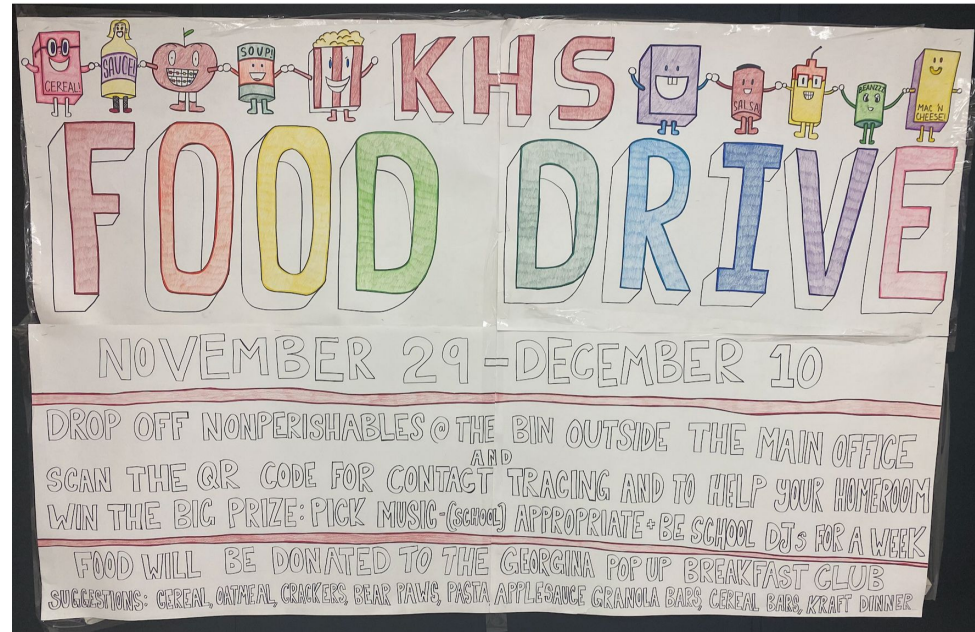 CEREAL!
SAUCE!
SOUP!
KHS
SALSA
BEANZZZ
MAC 'N
CHEESE!
FOOD DRIVE
NOVEMBER 29 - DECEMBER 10
DROP OFF NONPERISHABLES @ THE BIN OUTSIDE THE MAIN OFFICE
AND
SCAN THE QR CODE FOR CONTACT TRACING AND TO HELP YOUR HOMEROOM
WIN THE BIG PRIZE: PICK MUSIC-(SCHOOL) APPROPRIATE + BE SCHOOL DJs FOR A WEEK
FOOD WILL BE DONATED TO THE GEORGINA POP UP BREAKFAST CLUB
SUGGESTIONS: CEREAL, OATMEAL, CRACKERS, BEAR PAWS, PASTA APPLESAUCE GRANOLA BARS, CEREAL BARS, KRAFT DINNER